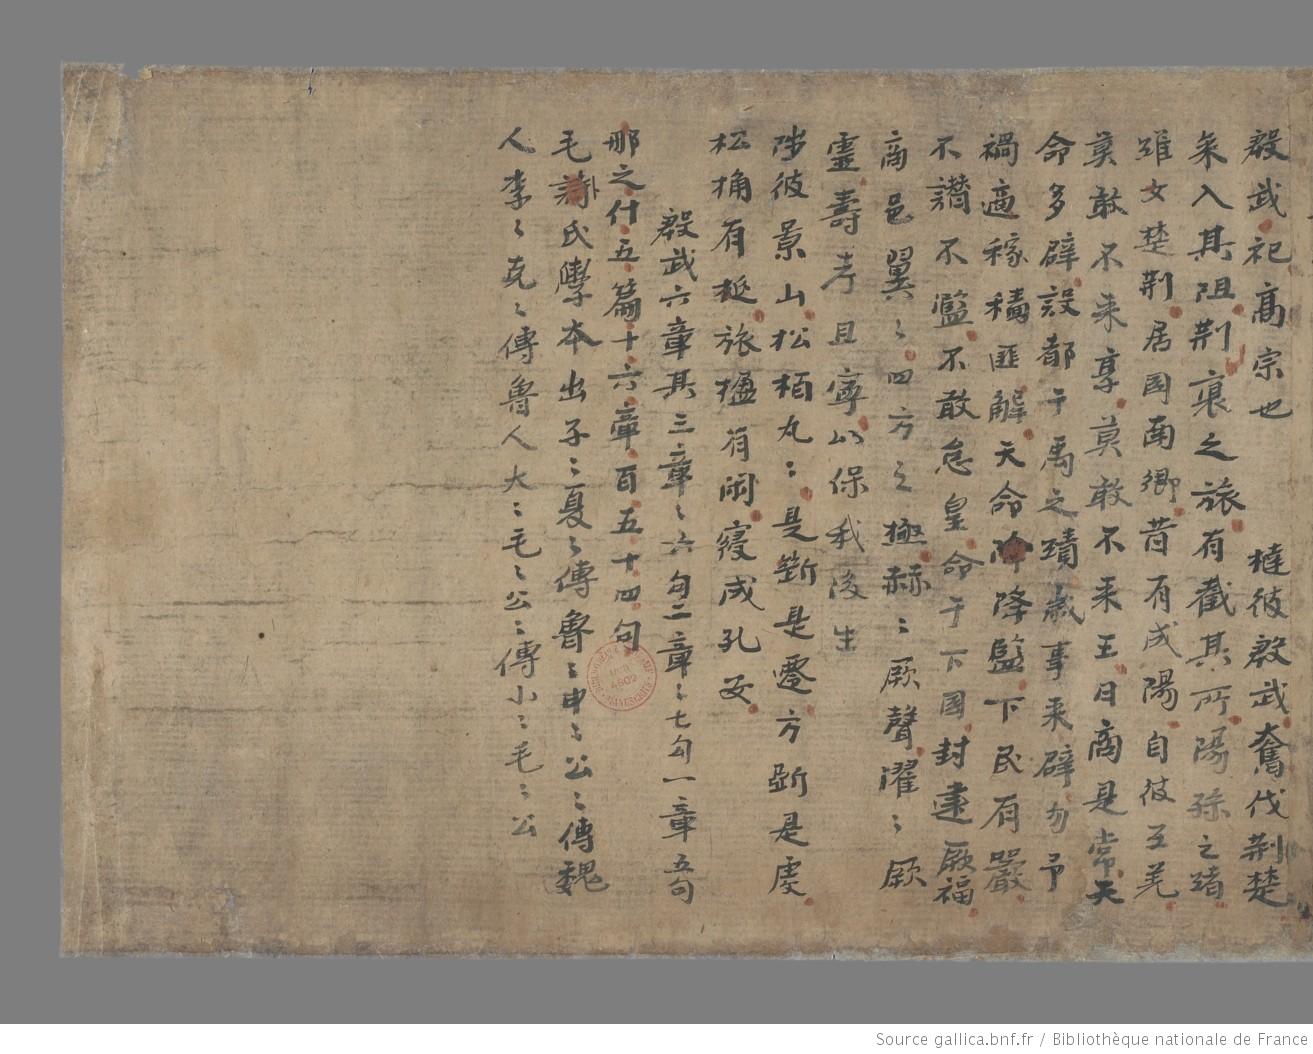 殷武祀高宗也 撻彼殷武奮伐荆楚
罙入其阻荆裒之旅有截其所湯孫之緒
維女楚荆居國南鄉昔有成湯自彼互羌
莫敢不来享莫敢不来王曰商是常天
命多辟設都于禹之蹟歳事来辟勿予
禍適稼穡匪解天命降監下民有嚴
不譖不濫不敢怠皇命于下國封建厥福
商邑翼〻四方之極赫〻厥聲濯〻厥
靈壽考且寧以保我後生
陟彼景山松栢丸〻是斷是遷方斲是虔
松桷有梴旅楹有閑寝成孔安
殷武六章其三章〻六句二章〻七句一章五句
那之什五篇十六章百五十四句
毛詩氏學本出子〻夏〻傳魯〻申〻公〻傳魏
人李〻克〻傳魯人大〻毛〻公〻傳小〻毛〻公
Source gallica.bnf.fr / Bibliothèque nationale de France